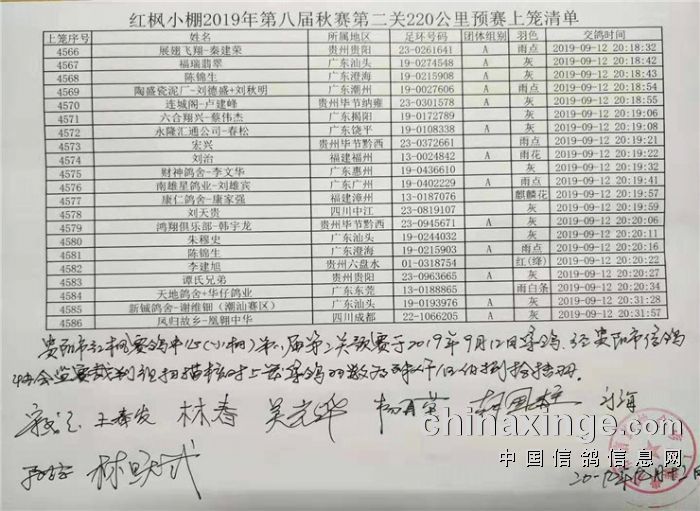 红枫小棚2019年第八届秋赛第二关220公里预赛上笼清单
上笼序号 姓名 所属地区 足环号码 团体组别 羽色 交鸽时间
4566 展翅飞翔-秦建荣 贵州贵阳 23-0261641 A 雨点 2019-09-12 20:18:32
4567 福瑞翡翠 广东汕头 19-0274548 A 灰 2019-09-12 20:18:42
4568 陈锦生 广东澄海 19-0215908 A 灰 2019-09-12 20:18:43
4569 陶盛瓷泥厂-刘德盛+刘秋明 广东潮州 19-0027606 A 雨点 2019-09-12 20:18:54
4570 连城阁-卢建峰 贵州毕节纳雍 23-0301578 A 灰 2019-09-12 20:18:55
4571 六合翔兴-蔡伟杰 广东揭阳 19-0172789 灰 2019-09-12 20:19:06
4572 永隆汇通公司-春松 广东饶平 19-0108338 A 灰 2019-09-12 20:19:08
4573 宏兴 贵州毕节黔西 23-0372661 雨点 2019-09-12 20:19:21
4574 刘治 福建福州 13-0024842 A 雨花 2019-09-12 20:19:22
4575 财神鸽舍-李文华 广东惠州 19-0436610 灰 2019-09-12 20:19:32
4576 南雄星鸽业-刘雄宾 广东广州 19-0402229 A 雨点 2019-09-12 20:19:41
4577 康仁鸽舍-康家强 福建漳州 13-0187076 麒麟花 2019-09-12 20:19:57
4578 刘天贵 四川中江 23-0819107 灰 2019-09-12 20:19:59
4579 鸿翔俱乐部-韩宇龙 贵州毕节黔西 23-0945671 A 灰 2019-09-12 20:20:06
4580 朱穆史 广东汕头 19-0244032 灰 2019-09-12 20:20:11
4581 陈锦生 广东澄海 19-0215903 A 雨点 2019-09-12 20:20:16
4582 李建旭 贵州六盘水 01-0318754 红(绛) 2019-09-12 20:20:22
4583 谭氏兄弟 贵州贵阳 23-0963665 A 灰 2019-09-12 20:20:27
4584 天地鸽舍+华仔鸽业 广东东莞 13-0188865 雨白条 2019-09-12 20:20:34
4585 新铖鸽舍-谢维钿(潮汕赛区) 广东汕头 19-0193976 A 灰 2019-09-12 20:31:28
4586 凤归故乡-凰翱中华 四川成都 22-1066205 A 灰 2019-09-12 20:31:57
贵阳市红枫赛鸽中心(小棚)第八届第二关预赛于2019年9月12日集鸽,经贵阳市信鸽
王春发 林春 吴克晔
chinaxinge.com
中国信鸽信息网